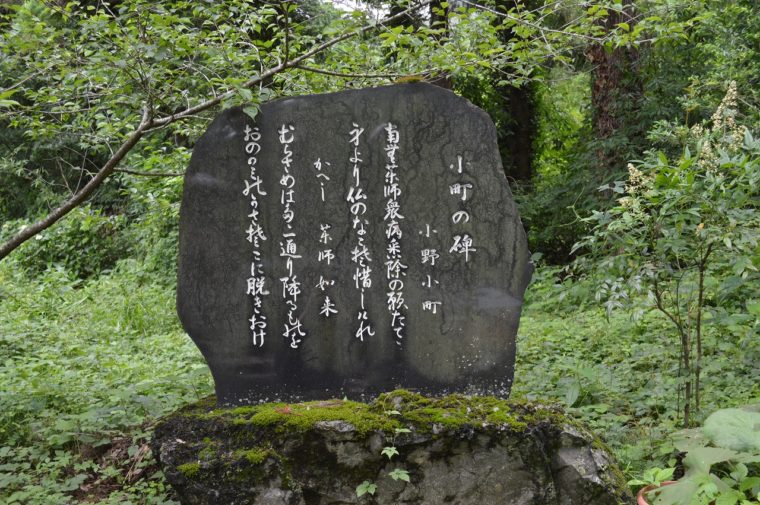 小町の碑
小野小町
南無薬師衆病悉除の願たてゝ
身より仏のなこそ惜しけれ
かへし　薬師如来
むらさめはたゝ一通り降るものを
おのかみのかさそこに脱きおけ